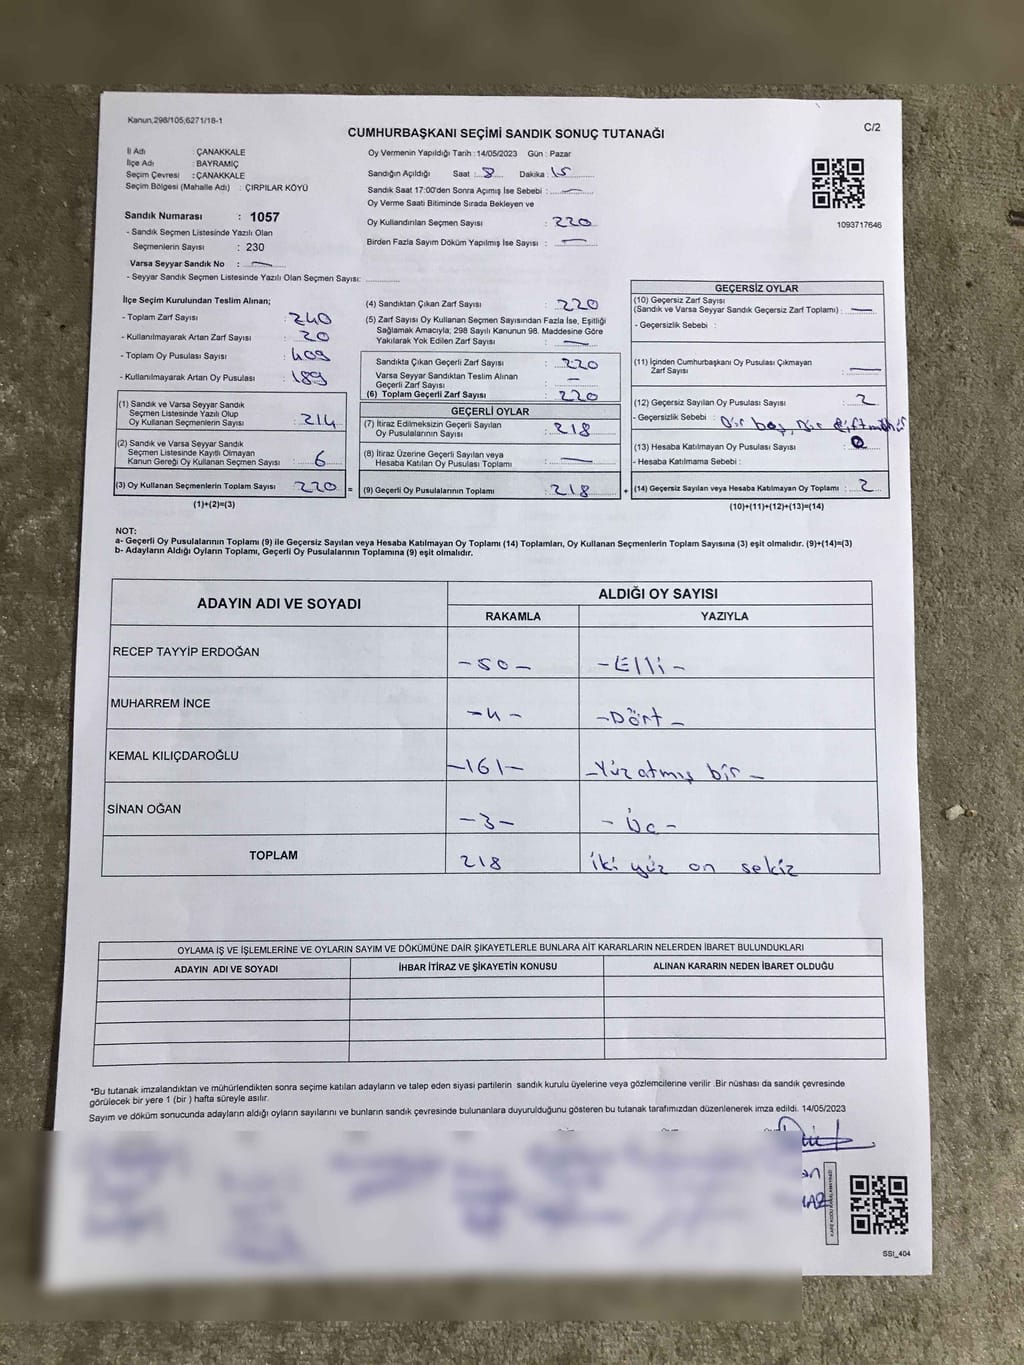 Kanun,298/105;6271/18-1
C/2
CUMHURBAŞKANI SEÇİMİ SANDIK SONUÇ TUTANAĞI
İl Adı : ÇANAKKALE
İlçe Adı : BAYRAMİÇ
Seçim Çevresi : ÇANAKKALE
Seçim Bölgesi (Mahalle Adı) : ÇIRPILAR KÖYÜ
Sandık Numarası : 1057
- Sandık Seçmen Listesinde Yazılı Olan
Seçmenlerin Sayısı : 230
Varsa Seyyar Sandık No : —
- Seyyar Sandık Seçmen Listesinde Yazılı Olan Seçmen Sayısı:
Oy Vermenin Yapıldığı Tarih : 14/05/2023 Gün : Pazar
Sandığın Açıldığı Saat : 8 Dakika : 15
Sandık Saat 17:00'den Sonra Açımış İse Sebebi : —
Oy Verme Saati Bitiminde Sırada Bekleyen ve
Oy Kullandırılan Seçmen Sayısı : 220
Birden Fazla Sayım Döküm Yapılmış İse Sayısı : —
1093717646
İlçe Seçim Kurulundan Teslim Alınan;
- Toplam Zarf Sayısı : 240
- Kullanılmayarak Artan Zarf Sayısı : 20
- Toplam Oy Pusulası Sayısı : 409
- Kullanılmayarak Artan Oy Pusulası : 189
(1) Sandık ve Varsa Seyyar Sandık
Seçmen Listesinde Yazılı Olup
Oy Kullanan Seçmenlerin Sayısı : 214
(2) Sandık ve Varsa Seyyar Sandık
Seçmen Listesinde Kayıtlı Olmayan
Kanun Gereği Oy Kullanan Seçmen Sayısı : 6
(3) Oy Kullanan Seçmenlerin Toplam Sayısı 220 =
(1)+(2)=(3)
(4) Sandıktan Çıkan Zarf Sayısı : 220
(5) Zarf Sayısı Oy Kullanan Seçmen Sayısından Fazla İse, Eşitliği
Sağlamak Amacıyla; 298 Sayılı Kanunun 98. Maddesine Göre
Yakılarak Yok Edilen Zarf Sayısı : —
Sandıkta Çıkan Geçerli Zarf Sayısı : 220
Varsa Seyyar Sandıktan Teslim Alınan
Geçerli Zarf Sayısı : —
(6) Toplam Geçerli Zarf Sayısı : 220
GEÇERLİ OYLAR
(7) İtiraz Edilmeksizin Geçerli Sayılan
Oy Pusulalarının Sayısı : 218
(8) İtiraz Üzerine Geçerli Sayılan veya
Hesaba Katılan Oy Pusulası Toplamı : —
(9) Geçerli Oy Pusulalarının Toplamı : 218 +
GEÇERSİZ OYLAR
(10) Geçersiz Zarf Sayısı
(Sandık ve Varsa Seyyar Sandık Geçersiz Zarf Toplamı) : —
- Geçersizlik Sebebi :
(11) İçinden Cumhurbaşkanı Oy Pusulası Çıkmayan
Zarf Sayısı : —
(12) Geçersiz Sayılan Oy Pusulası Sayısı : 2
- Geçersizlik Sebebi : bir boş, bir çift mühür
(13) Hesaba Katılmayan Oy Pusulası Sayısı : 0
- Hesaba Katılmama Sebebi :
(14) Geçersiz Sayılan veya Hesaba Katılmayan Oy Toplamı : 2
(10)+(11)+(12)+(13)=(14)
NOT:
a- Geçerli Oy Pusulalarının Toplamı (9) ile Geçersiz Sayılan veya Hesaba Katılmayan Oy Toplamı (14) Toplamları, Oy Kullanan Seçmenlerin Toplam Sayısına (3) eşit olmalıdır. (9)+(14)=(3)
b- Adayların Aldığı Oyların Toplamı, Geçerli Oy Pusulalarının Toplamına (9) eşit olmalıdır.
ADAYIN ADI VE SOYADI
ALDIĞI OY SAYISI
RAKAMLA YAZIYLA
RECEP TAYYİP ERDOĞAN -50- -Elli-
MUHARREM İNCE -4- -Dört-
KEMAL KILIÇDAROĞLU -161- -Yüz atmış bir-
SİNAN OĞAN -3- -Üç-
TOPLAM 218 iki yüz on sekiz
OYLAMA İŞ VE İŞLEMLERİNE VE OYLARIN SAYIM VE DÖKÜMÜNE DAİR ŞİKAYETLERLE BUNLARA AİT KARARLARIN NELERDEN İBARET BULUNDUKLARI
ADAYIN ADI VE SOYADI İHBAR İTİRAZ VE ŞİKAYETİN KONUSU ALINAN KARARIN NEDEN İBARET OLDUĞU
*Bu tutanak imzalandıktan ve mühürlendikten sonra seçime katılan adayların ve talep eden siyasi partilerin sandık kurulu üyelerine veya gözlemcilerine verilir .Bir nüshası da sandık çevresinde
görülecek bir yere 1 (bir ) hafta süreyle asılır.
Sayım ve döküm sonucunda adayların aldığı oyların sayılarını ve bunların sandık çevresinde bulunanlara duyurulduğunu gösteren bu tutanak tarafımızdan düzenlenerek imza edildi. 14/05/2023
SSI_404